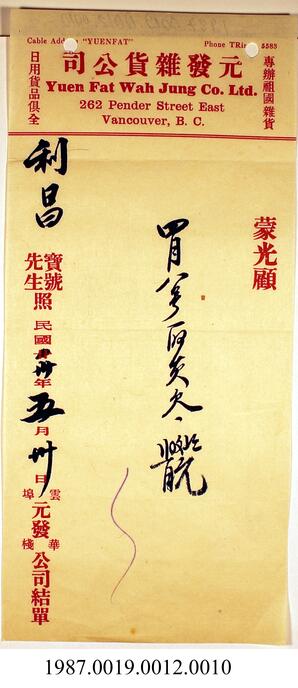 Cable Address "YUENFAT" Phone TRin 5583
元發雜貨公司
專辦祖國雜貨
日用貨品俱全
Yuen Fat Wah Jung Co. Ltd.
262 Pender Street East
Vancouver, B. C.
蒙光顧
四月八号
利昌
寶號
先生
照
民國卅年五月卅日
雲埠
元發
華棧
公司結單
1987.0019.0012.0010